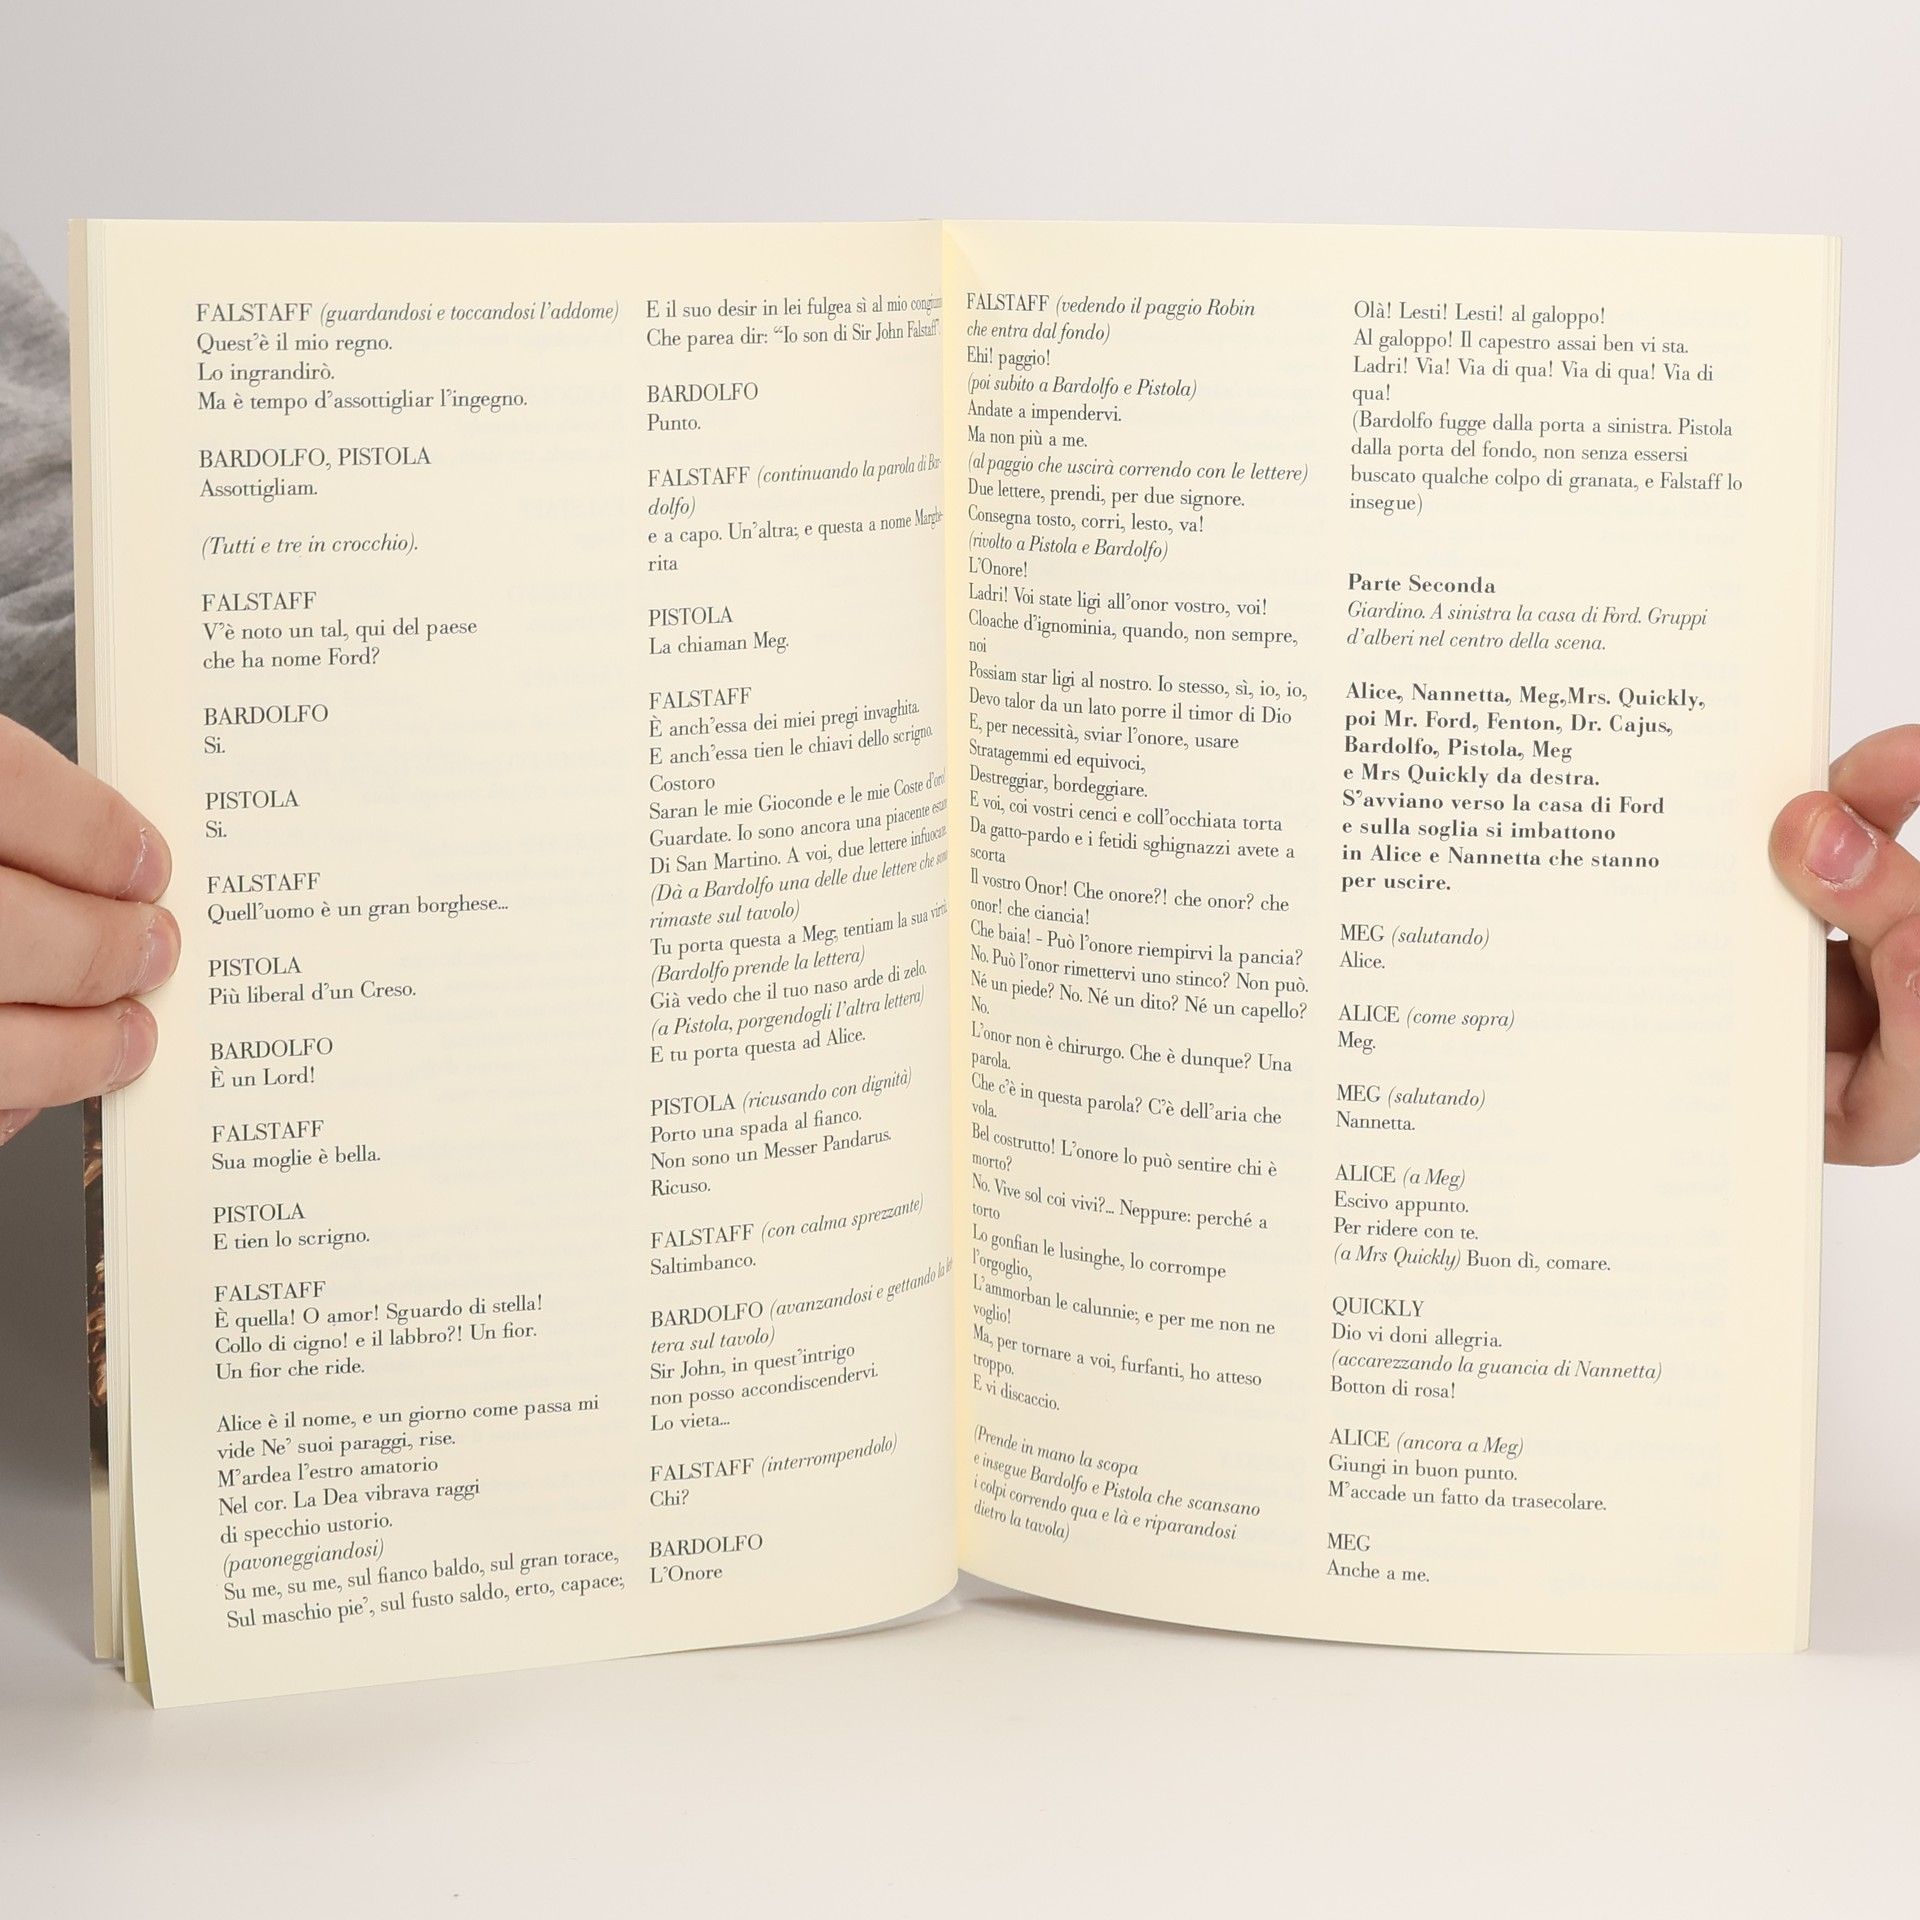 FALSTAFF (guardandosi e toccandosi l'addome)
Quest'è il mio regno.
Lo ingrandirò.
Ma è tempo d'assottigliar l'ingegno.
BARDOLFO, PISTOLA
Assottigliam.
(Tutti e tre in crocchio).
FALSTAFF
V'è noto un tal, qui del paese
che ha nome Ford?
BARDOLFO
Si.
PISTOLA
Si.
FALSTAFF
Quell'uomo è un gran borghese...
PISTOLA
Più liberal d'un Creso.
BARDOLFO
È un Lord!
FALSTAFF
Sua moglie è bella.
PISTOLA
E tien lo scrigno.
FALSTAFF
È quella! O amor! Sguardo di stella!
Collo di cigno! e il labbro?! Un fior.
Un fior che ride.
Alice è il nome, e un giorno come passa mi
vide Ne' suoi paraggi, rise.
M'ardea l'estro amatorio
Nel cor. La Dea vibrava raggi
di specchio ustorio.
(pavoneggiandosi)
Su me, su me, sul fianco baldo, sul gran torace,
Sul maschio pie', sul fusto saldo, erto, capace;
E il suo desir in lei fulgea sì al mio
Che parea dir: “Io son di Sir John Falstaff”.
BARDOLFO
Punto.
FALSTAFF (continuando la parola di Bar-
dolfo)
e a capo. Un'altra; e questa a nome Marghe-
rita
PISTOLA
La chiaman Meg.
FALSTAFF
È anch'essa dei miei pregi invaghita.
E anch'essa tien le chiavi dello scrigno.
Costoro
Saran le mie Gioconde e le mie Coste d'oro!
Guardate. Io sono ancora una piacente
Di San Martino. A voi, due lettere
(Dà a Bardolfo una delle due lettere che
rimaste sul tavolo)
Tu porta questa a Meg; tentiam la sua virtù.
(Bardolfo prende la lettera)
Già vedo che il tuo naso arde di zelo.
(a Pistola, porgendogli l'altra lettera)
E tu porta questa ad Alice.
PISTOLA (ricusando con dignità)
Porto una spada al fianco.
Non sono un Messer Pandarus.
Ricuso.
FALSTAFF (con calma sprezzante)
Saltimbanco.
BARDOLFO (avanzandosi e gettando la let-
tera sul tavolo)
Sir John, in quest'intrigo
non posso accondiscendervi.
Lo vieta...
FALSTAFF (interrompendolo)
Chi?
BARDOLFO
L'Onore
FALSTAFF (vedendo il paggio Robin
che entra dal fondo)
Ehi! paggio!
(poi subito a Bardolfo e Pistola)
Andate a impendervi.
Ma non più a me.
(al paggio che uscirà correndo con le lettere)
Due lettere, prendi, per due signore.
Consegna tosto, corri, lesto, va!
(rivolto a Pistola e Bardolfo)
L'Onore!
Ladri! Voi state ligi all'onor vostro, voi!
Cloache d'ignominia, quando, non sempre,
noi
Possiam star ligi al nostro. Io stesso, sì, io, io,
Devo talor da un lato porre il timor di Dio
E, per necessità, sviar l'onore, usare
Stratagemmi ed equivoci,
Destreggiar, bordeggiare.
E voi, coi vostri cenci e coll'occhiata torta
Da gatto-pardo e i fetidi sghignazzi avete a
scorta
Il vostro Onor! Che onore?! che onor? che
onor! che ciancia!
Che baia! - Può l'onore riempirvi la pancia?
No. Può l'onor rimettervi uno stinco? Non può.
Né un piede? No. Né un dito? Né un capello?
No.
L'onor non è chirurgo. Che è dunque? Una
parola.
Che c'è in questa parola? C'è dell'aria che
vola.
Bel costrutto! L'onore lo può sentire chi è
morto?
No. Vive sol coi vivi?... Neppure: perché a
torto
Lo gonfian le lusinghe, lo corrompe
l'orgoglio,
L'ammorban le calunnie; e per me non ne
voglio!
Ma, per tornare a voi, furfanti, ho atteso
troppo.
E vi discaccio.
(Prende in mano la scopa
e insegue Bardolfo e Pistola che scansano
i colpi correndo qua e là e riparandosi
dietro la tavola)
Olà! Lesti! Lesti! al galoppo!
Al galoppo! Il capestro assai ben vi sta.
Ladri! Via! Via di qua! Via di qua! Via di
qua!
(Bardolfo fugge dalla porta a sinistra. Pistola
dalla porta del fondo, non senza essersi
buscato qualche colpo di granata, e Falstaff lo
insegue)
Parte Seconda
Giardino. A sinistra la casa di Ford. Gruppi
d'alberi nel centro della scena.
Alice, Nannetta, Meg,Mrs. Quickly,
poi Mr. Ford, Fenton, Dr. Cajus,
Bardolfo, Pistola, Meg
e Mrs Quickly da destra.
S'avviano verso la casa di Ford
e sulla soglia si imbattono
in Alice e Nannetta che stanno
per uscire.
MEG (salutando)
Alice.
ALICE (come sopra)
Meg.
MEG (salutando)
Nannetta.
ALICE (a Meg)
Escivo appunto.
Per ridere con te.
(a Mrs Quickly) Buon dì, comare.
QUICKLY
Dio vi doni allegria.
(accarezzando la guancia di Nannetta)
Botton di rosa!
ALICE (ancora a Meg)
Giungi in buon punto.
M'accade un fatto da trasecolare.
MEG
Anche a me.